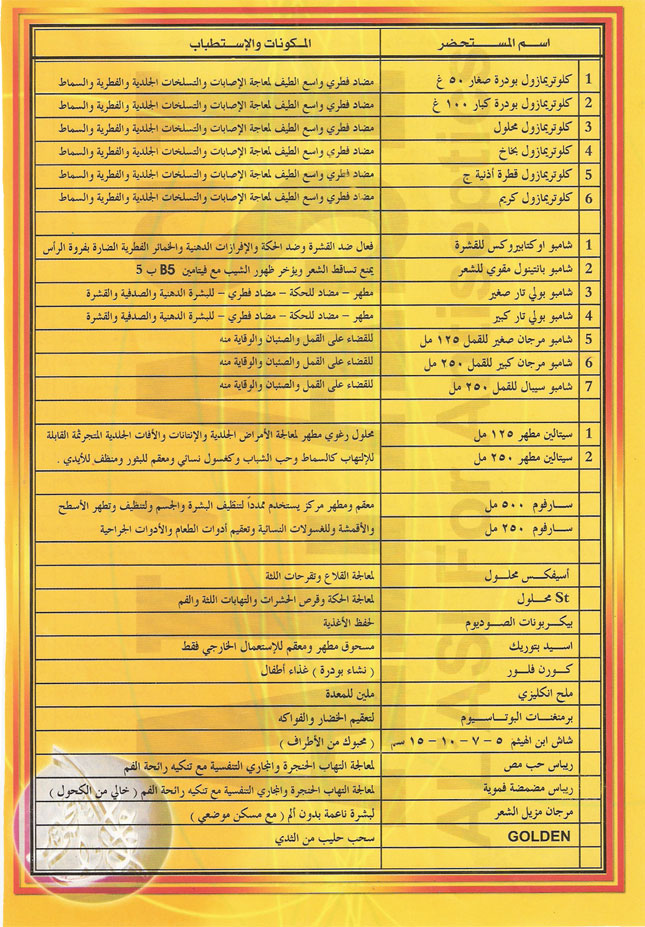 اسم المستحضر	المكونات والإستطباب
1 كلوتريمازول بودرة صغار ٥٠ غ	مضاد فطري واسع الطيف لمعاجة الإصابات والتسلخات الجلدية والفطرية والسماط
2 كلوتريمازول بودرة كبار ١٠٠ غ	مضاد فطري واسع الطيف لمعاجة الإصابات والتسلخات الجلدية والفطرية والسماط
3 كلوتريمازول محلول	مضاد فطري واسع الطيف لمعاجة الإصابات والتسلخات الجلدية والفطرية والسماط
4 كلوتريمازول بخاخ	مضاد فطري واسع الطيف لمعاجة الإصابات والتسلخات الجلدية والفطرية والسماط
5 كلوتريمازول قطرة أذنية ج	مضاد فطري واسع الطيف لمعاجة الإصابات والتسلخات الجلدية والفطرية والسماط
6 كلوتريمازول كريم	مضاد فطري واسع الطيف لمعاجة الإصابات والتسلخات الجلدية والفطرية والسماط
1 شامبو اوكتابيروكس للقشرة	فعال ضد القشرة وضد الحكة والإفرازات الدهنية والخمائر الفطرية الضارة بفروة الرأس
2 شامبو بانتينول مقوي للشعر	يمنع تساقط الشعر ويؤخر ظهور الشيب مع فيتامين B5 ب 5
3 شامبو بولي تار صغير	مطهر – مضاد للحكة – مضاد فطري – للبشرة الدهنية والصدفية والقشرة
4 شامبو بولي تار كبير	مطهر – مضاد للحكة – مضاد فطري – للبشرة الدهنية والصدفية والقشرة
5 شامبو مرجان صغير للقمل ١٢٥ مل	للقضاء على القمل والصئبان والوقاية منه
6 شامبو مرجان كبير للقمل ٢٥٠ مل	للقضاء على القمل والصئبان والوقاية منه
7 شامبو سيبال للقمل ٢٥٠ مل	للقضاء على القمل والصئبان والوقاية منه
1 سيتالين مطهر ١٢٥ مل	محلول رغوي مطهر لمعالجة الأمراض الجلدية والإنتانات والآفات الجلدية المتجرثمة القابلة
2 سيتالين مطهر ٢٥٠ مل	للإلتهاب كالسماط وحب الشباب وكغسول نسائي ومعقم للبثور ومنظف للأيدي .
سارفوم ٥٠٠ مل	معقم ومطهر مركز يستخدم ممدداً لتنظيف البشرة والجسم ولتنظيف وتطهر الأسطح
سارفوم ٢٥٠ مل	والأقمشة وللغسولات النسائية وتعقيم أدوات الطعام والأدوات الجراحية
أسيفكس محلول	لمعالجة القلاع وتقرحات اللثة
St محلول	لمعالجة الحكة وقرص الحشرات والتهابات اللثة والفم
بيكربونات الصوديوم	لحفظ الأغذية
اسيد بتوريك	مسحوق مطهر ومعقم للإستعمال الخارجي فقط
كورن فلور	( نشاء بودرة ) غذاء أطفال
ملح انكليزي	ملين للمعدة
برمنغنات البوتاسيوم	لتعقيم الخضار والفواكه
شاش ابن الهيثم ٥ – ٧ – ١٠ – ١٥ سم	( محبوك من الأطراف )
ريباس حب مص	لمعالجة التهاب الحنجرة والمجاري التنفسية مع تنكيه رائحة الفم
ريباس مضمضة فموية	لمعالجة التهاب الحنجرة والمجاري التنفسية مع تنكيه رائحة الفم ( خالي من الكحول )
مرجان مزيل الشعر	لبشرة ناعمة بدون ألم ( مع مسكن موضعي )
GOLDEN	سحب حليب من الثدي